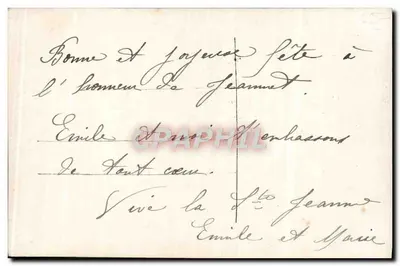 Bonne et joyeuse fête à
l'honneur de Jeannet.
Emile et moi t'embrassons
de tout cœur.
Vive la Ste Jeanne
Emile et Marie